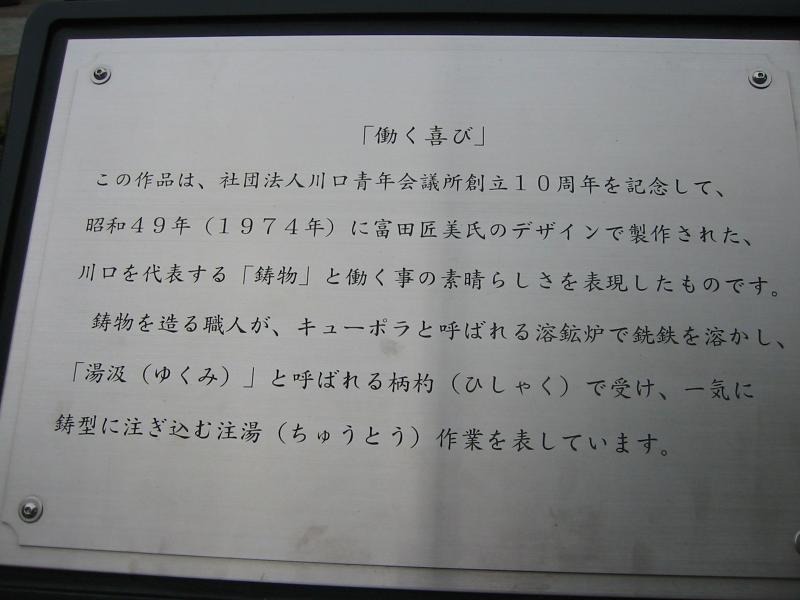 「働く喜び」
この作品は、社団法人川口青年会議所創立１０周年を記念して、
昭和４９年（１９７４年）に富田匠美氏のデザインで製作された、
川口を代表する「鋳物」と働く事の素晴らしさを表現したものです。
鋳物を造る職人が、キューポラと呼ばれる溶鉱炉で銑鉄を溶かし、
「湯汲（ゆくみ）」と呼ばれる柄杓（ひしゃく）で受け、一気に
鋳型に注ぎ込む注湯（ちゅうとう）作業を表しています。